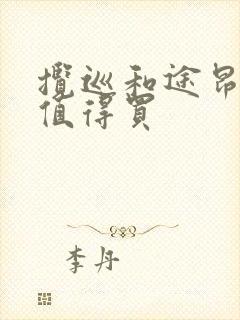 攬巡和途昂
值得買
李丹